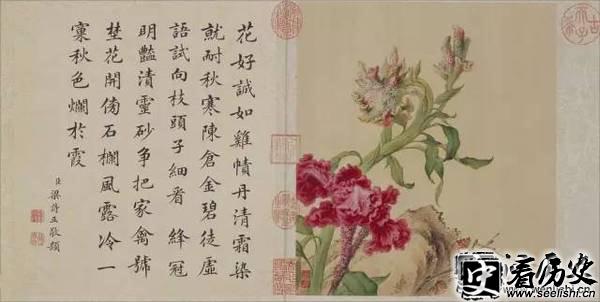 花好誠如雞幘丹清霜染
就耐秋寒陳倉金碧徒虛
語試向枝頭子細看 絳冠
明豔漬靈砂争把家禽號
埜花開傍石欄風露冷一
窠秋色爛於霞
臣梁詩正敬題
看历史
www.seelishi.cn